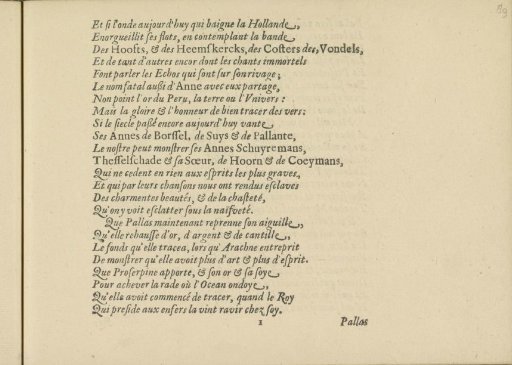 Et ſi l'onde aujourd'huy qui baigne la Hollande,
Enorgueillit ſes flots, en contemplant la bande
Des Hoofts, & des Heemſkercks, des Coſters des, Vondels,
Et de tant d'autres encor dont les chants immortels
Font parler les Echos qui ſont ſur ſon rivage;
Le nom fatal auſſi d'Anne avec eux partage,
Non point l'or du Peru, la terre ou l'Vnivers:
Mais la gloire & l'honneur de bien tracer des vers:
Si le ſiecle paßé encore aujourd'huy vante
Ses Annes de Borſſel, de Suys & de Pallante,
Le noſtre peut monſtrer ſes Annes Schuyremans,
Theſſelſchade & ſa Sœur, de Hoorn & de Coeymans,
Qui ne cedent en rien aux eſprits les plus graves,
Et qui par leurs chanſons nous ont rendus eſclaves
Des charmentes beautés, & de la chaſteté,
Qu'on y voit eſclatter ſous la naïfveté.
Que Pallas maintenant reprenne ſon aiguille,
Qu'elle rehauſſe d'or, d argent & de cantille,
Le fonds qu'elle tracea, lors qu'Arachne entreprit
De monſtrer qu'elle avoit plus d'art & plus d'eſprit.
Que Proſerpine apporte, & ſon or & ſa ſoye
Pour achever la rade où l'Ocean ondoye,
Qu'elle avoit commencé de tracer, quand le Roy
Qui preſide aux enfers la vint ravir chez ſoy.
1 Pallas